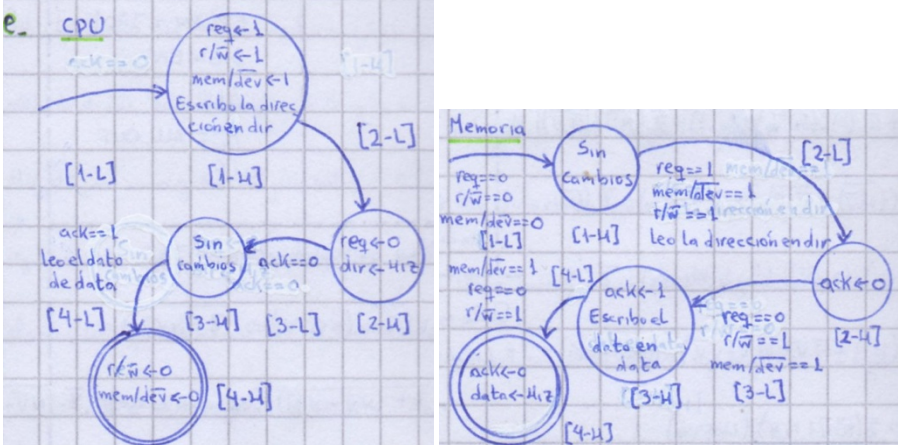 e. CPU
req←1
r/w̅←1
mem/d̅e̅v̅←1
Escribo la direc
ción en dir
[2-L]
[1-L]
[1-H]
ack==1
leo el dato
de data
Sin
cambios
ack==0
req←0
dir←HiZ
[4-L]
[3-H]
[3-L]
[2-H]
r/w̅←0
mem/d̅e̅v̅←0
[4-H]
Memoria
req==0
r/w̅==0
mem/d̅e̅v̅==0
[1-L]
Sin
cambios
[1-H]
[2-L]
req==1
mem/d̅e̅v̅==1
r/w̅==1
Leo la dirección en dir
ack←0
[2-H]
mem/d̅e̅v̅==1
req==0
r/w̅==1
[4-L]
ack←1
Escribo el
dato en
data
[3-H]
req==0
r/w̅==1
mem/d̅e̅v̅==1
[3-L]
ack←0
data←HiZ
[4-H]